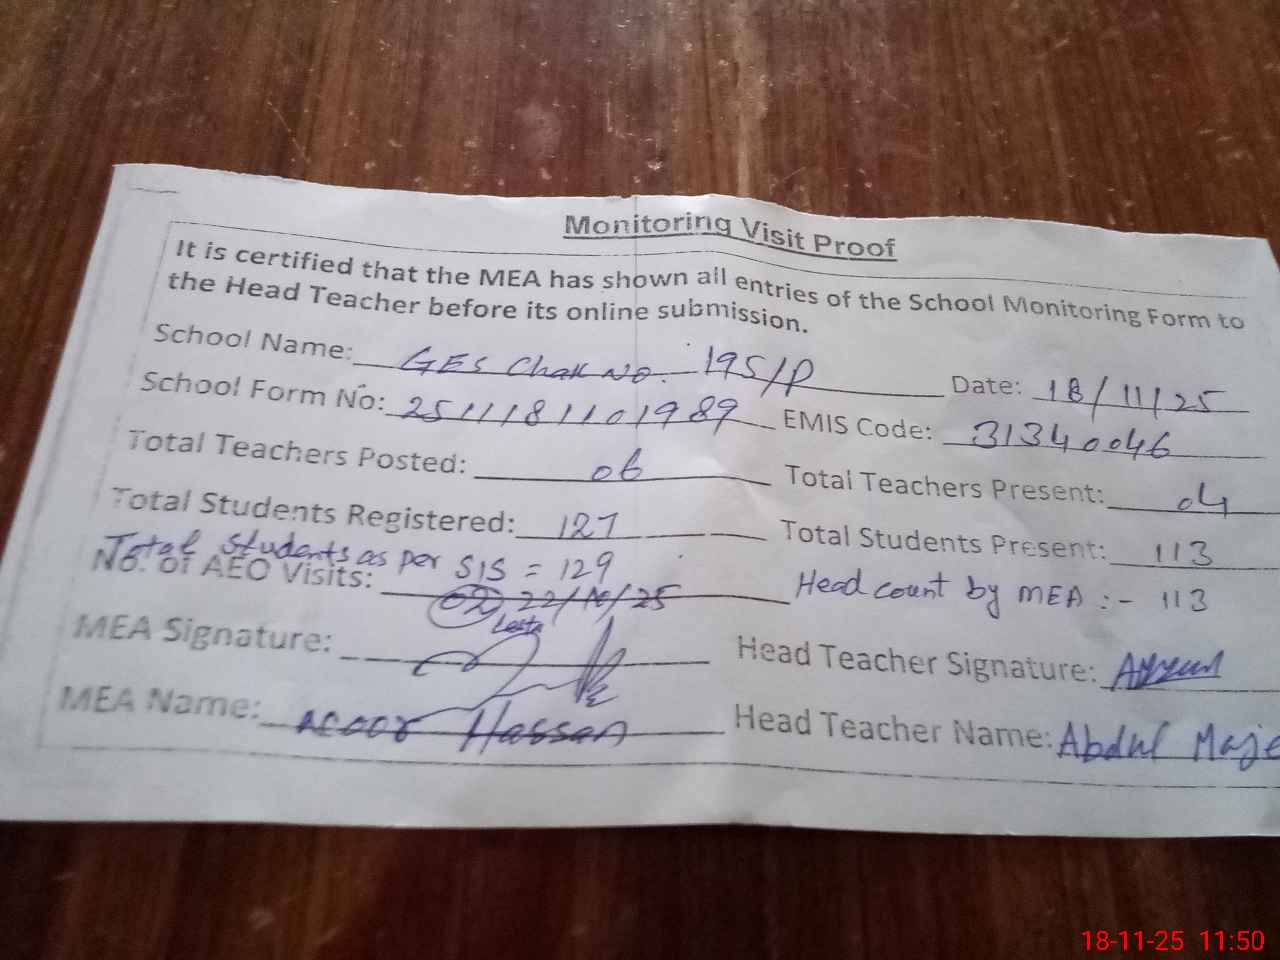 Monitoring Visit Proof
It is certified that the MEA has shown all entries of the School Monitoring Form to
the Head Teacher before its online submission.
School Name: GES Chak No. 195/P Date: 18/11/25
School Form No: 2511181101989 EMIS Code: 31340046
Total Teachers Posted: 06 Total Teachers Present: 04
Total Students Registered: 127 Total Students Present: 113
Total students as per SIS = 129
No. of AEO Visits: 02 22/10/25 Head count by MEA :- 113
MEA Signature: Head Teacher Signature:
MEA Name: Hassan Head Teacher Name: Abdul Maje
18-11-25 11:50